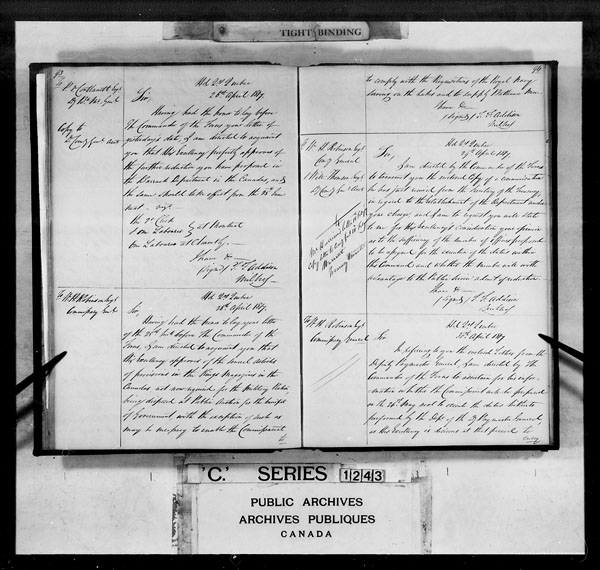 TIGHT BINDING
Hd Qrs Quebec
28th April 1817
Sir,
Having had the honor to lay before
The Commander of the Forces your letter of
yesterday's date, I am directed to acquaint
you that His Excellency perfectly approves of
the further reduction you have proposed in
the Barrack Department in the Canadas, and
the same should take effect from the
Copy to
at Montreal
one Labourer at Chambly.
I have &c
(signed) T. F. Addison
Mil. Secy.
To W. H. Robinson Esqr
Commissary Genl
Hd Qrs Quebec
28th April 1817.
Sir,
Having had the honor to lay your letter
of the before the Commander of the
Forces, I am directed to acquaint you that
His Excellency approves of the several articles
of provisions in the Kings Magazines in the
Canadas not now required for the Military Rations
being disposed at Public Auction for the benefit
of Government with the exception of such as
may be necessary to enable the Commissariat
to
to comply with the Requisitions of the Royal Navy
serving on the Lakes and to supply
I have &c
(signed) T. F. Addison
Mil. Secy
To W. H. Robinson Esqr
Comy General
Hd Qrs Quebec
29th April 1817.
Sir,
I am directed by the Commander of the Forces
to transmit you the enclosed Copy of a communication
he has just received from the Secretary of the Treasury,
in regard to the Establishment of the Department under
your charge and I am to request you will state
to me for His Excellency's consideration your opinion
as to the sufficiency of the number of officers proposed
to be assigned for the execution of the duties within
this Command and whether the number will with
advantage to the Public Service admit of reduction.
I have &c
(signed) T. F. Addison
Mil. Secy
To W. H. Robinson Esqr
Commissary General
Hd Qrs Quebec
30th April 1817
Sir
In referring to you the enclosed Letters from the
Deputy Paymaster General, I am directed by the
Commander of the Forces to ascertain for his infor-
mation whether the Commissariat will be prepared
on the 24th May next to execute the duties hitherto
performed by the Dept. of the Dy Paymaster General,
as His Excellency is desirous at that period to
'C.' SERIES 1243
PUBLIC ARCHIVES
ARCHIVES PUBLIQUES
CANADA